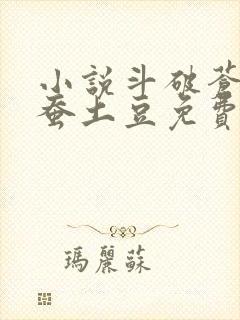 小說斗破蒼
蚕土豆免費
瑪麗蘇